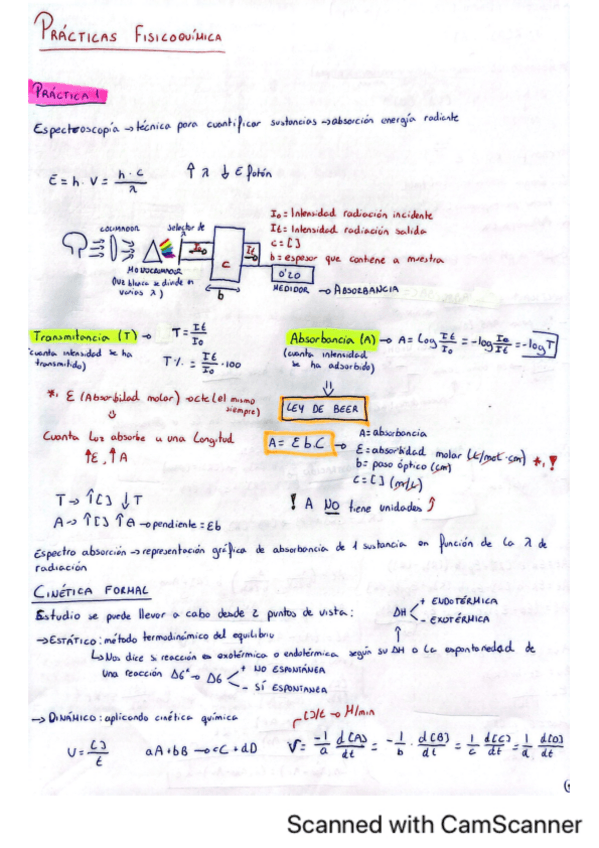 PRÁCTICAS FISICOQUÍMICA
PRÁCTICA 1
Espectroscopía → técnica para cuantificar sustancias → absorción energía radiante
E = h · V = h · c / λ   ↑ λ ↓ E fotón
I₀ = Intensidad radiación incidente
It = Intensidad radiación salida
c = [ ]
b = espesor que contiene a muestra
COLIMADOR
selector de λ
I₀
It
c
b
MONOCROMADOR
(luz blanca se divide en varios λ)
0'20
MEDIDOR → ABSORBANCIA
Transmitancia (T) → T = It / I₀
(cuanta intensidad se ha transmitido)
T% = It / I₀ · 100
Absorbancia (A) → A = Log It / I₀ = -log I₀ / It = -log T
(cuanta intensidad se ha adsorbido)
LEY DE BEER
*, E (Absorbilad molar) → cte (el mismo siempre)
Cuanta luz absorbe a una longitud
↑E, ↑A
A = E b C →
A = absorbancia
E = absorbidad molar (L/mol·cm) *, !
b = paso óptico (cm)
C = [ ] (mol/L)
! A NO tiene unidades
T → ↑[ ] ↓T
A → ↑[ ] ↑A → pendiente = Eb
Espectro absorción → representación gráfica de absorbancia de 1 sustancia en función de la λ de
radiación
CINÉTICA FORMAL
Estudio se puede llevar a cabo desde 2 puntos de vista:
ΔH < + ENDOTÉRMICA
- EXOTÉRMICA
→ ESTÁTICO: método termodinámico del equilibrio
↳ Nos dice si reacción es exotérmica o endotérmica según su ΔH o la espontaneidad de
una reacción ΔG° → ΔG < + NO ESPONTÁNEA
- SÍ ESPONTANEA
→ DINÁMICO: aplicando cinética química
[ ]/t → M/min
V = [ ] / t   aA + bB → cC + dD   V = -1/a d[A]/dt = -1/b · d[B]/dt = 1/c d[C]/dt = 1/d d[D]/dt
Scanned with CamScanner